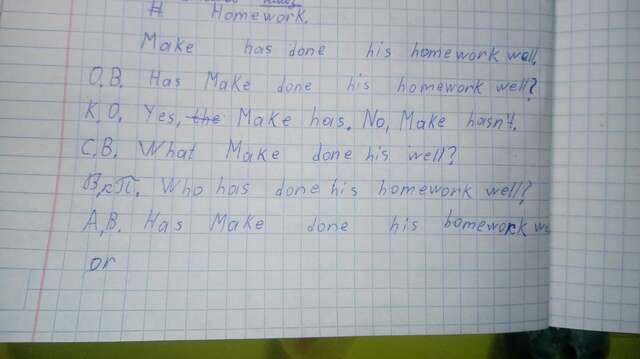 # Homework.
Make has done his homework well.
О.В. Has Make done his homework well?
К.О. Yes, the Make has. No, Make hasn't.
С.В. What Make done his well?
В.кП. Who has done his homework well?
А.В. Has Make done his homework
or